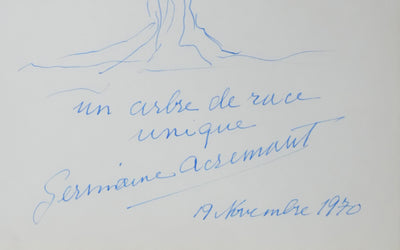 un arbre de race
unique
Germaine Acremant
19 Novembre 1970